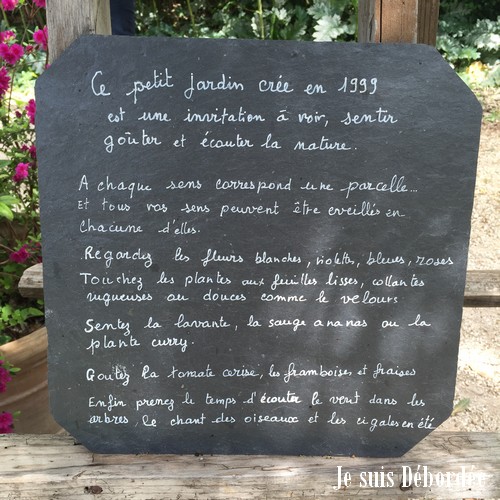 Ce petit jardin crée en 1999
est une invitation à voir, sentir
goûter et écouter la nature.
A chaque sens correspond une parcelle...
Et tous vos sens peuvent être eveillés en
chacune d'elles.
Regardez les fleurs blanches, violettes, bleues, roses
Touchez les plantes aux feuilles lisses, collantes
rugueuses au douces comme le velours
Sentez la lavante, la sauge ananas ou la
plante curry.
Goûtez la tomate cerise, les framboises et fraises
Enfin prenez le temps d'écouter le vent dans les
arbres, le chant des oiseaux et les cigales en été
Je suis Débordée